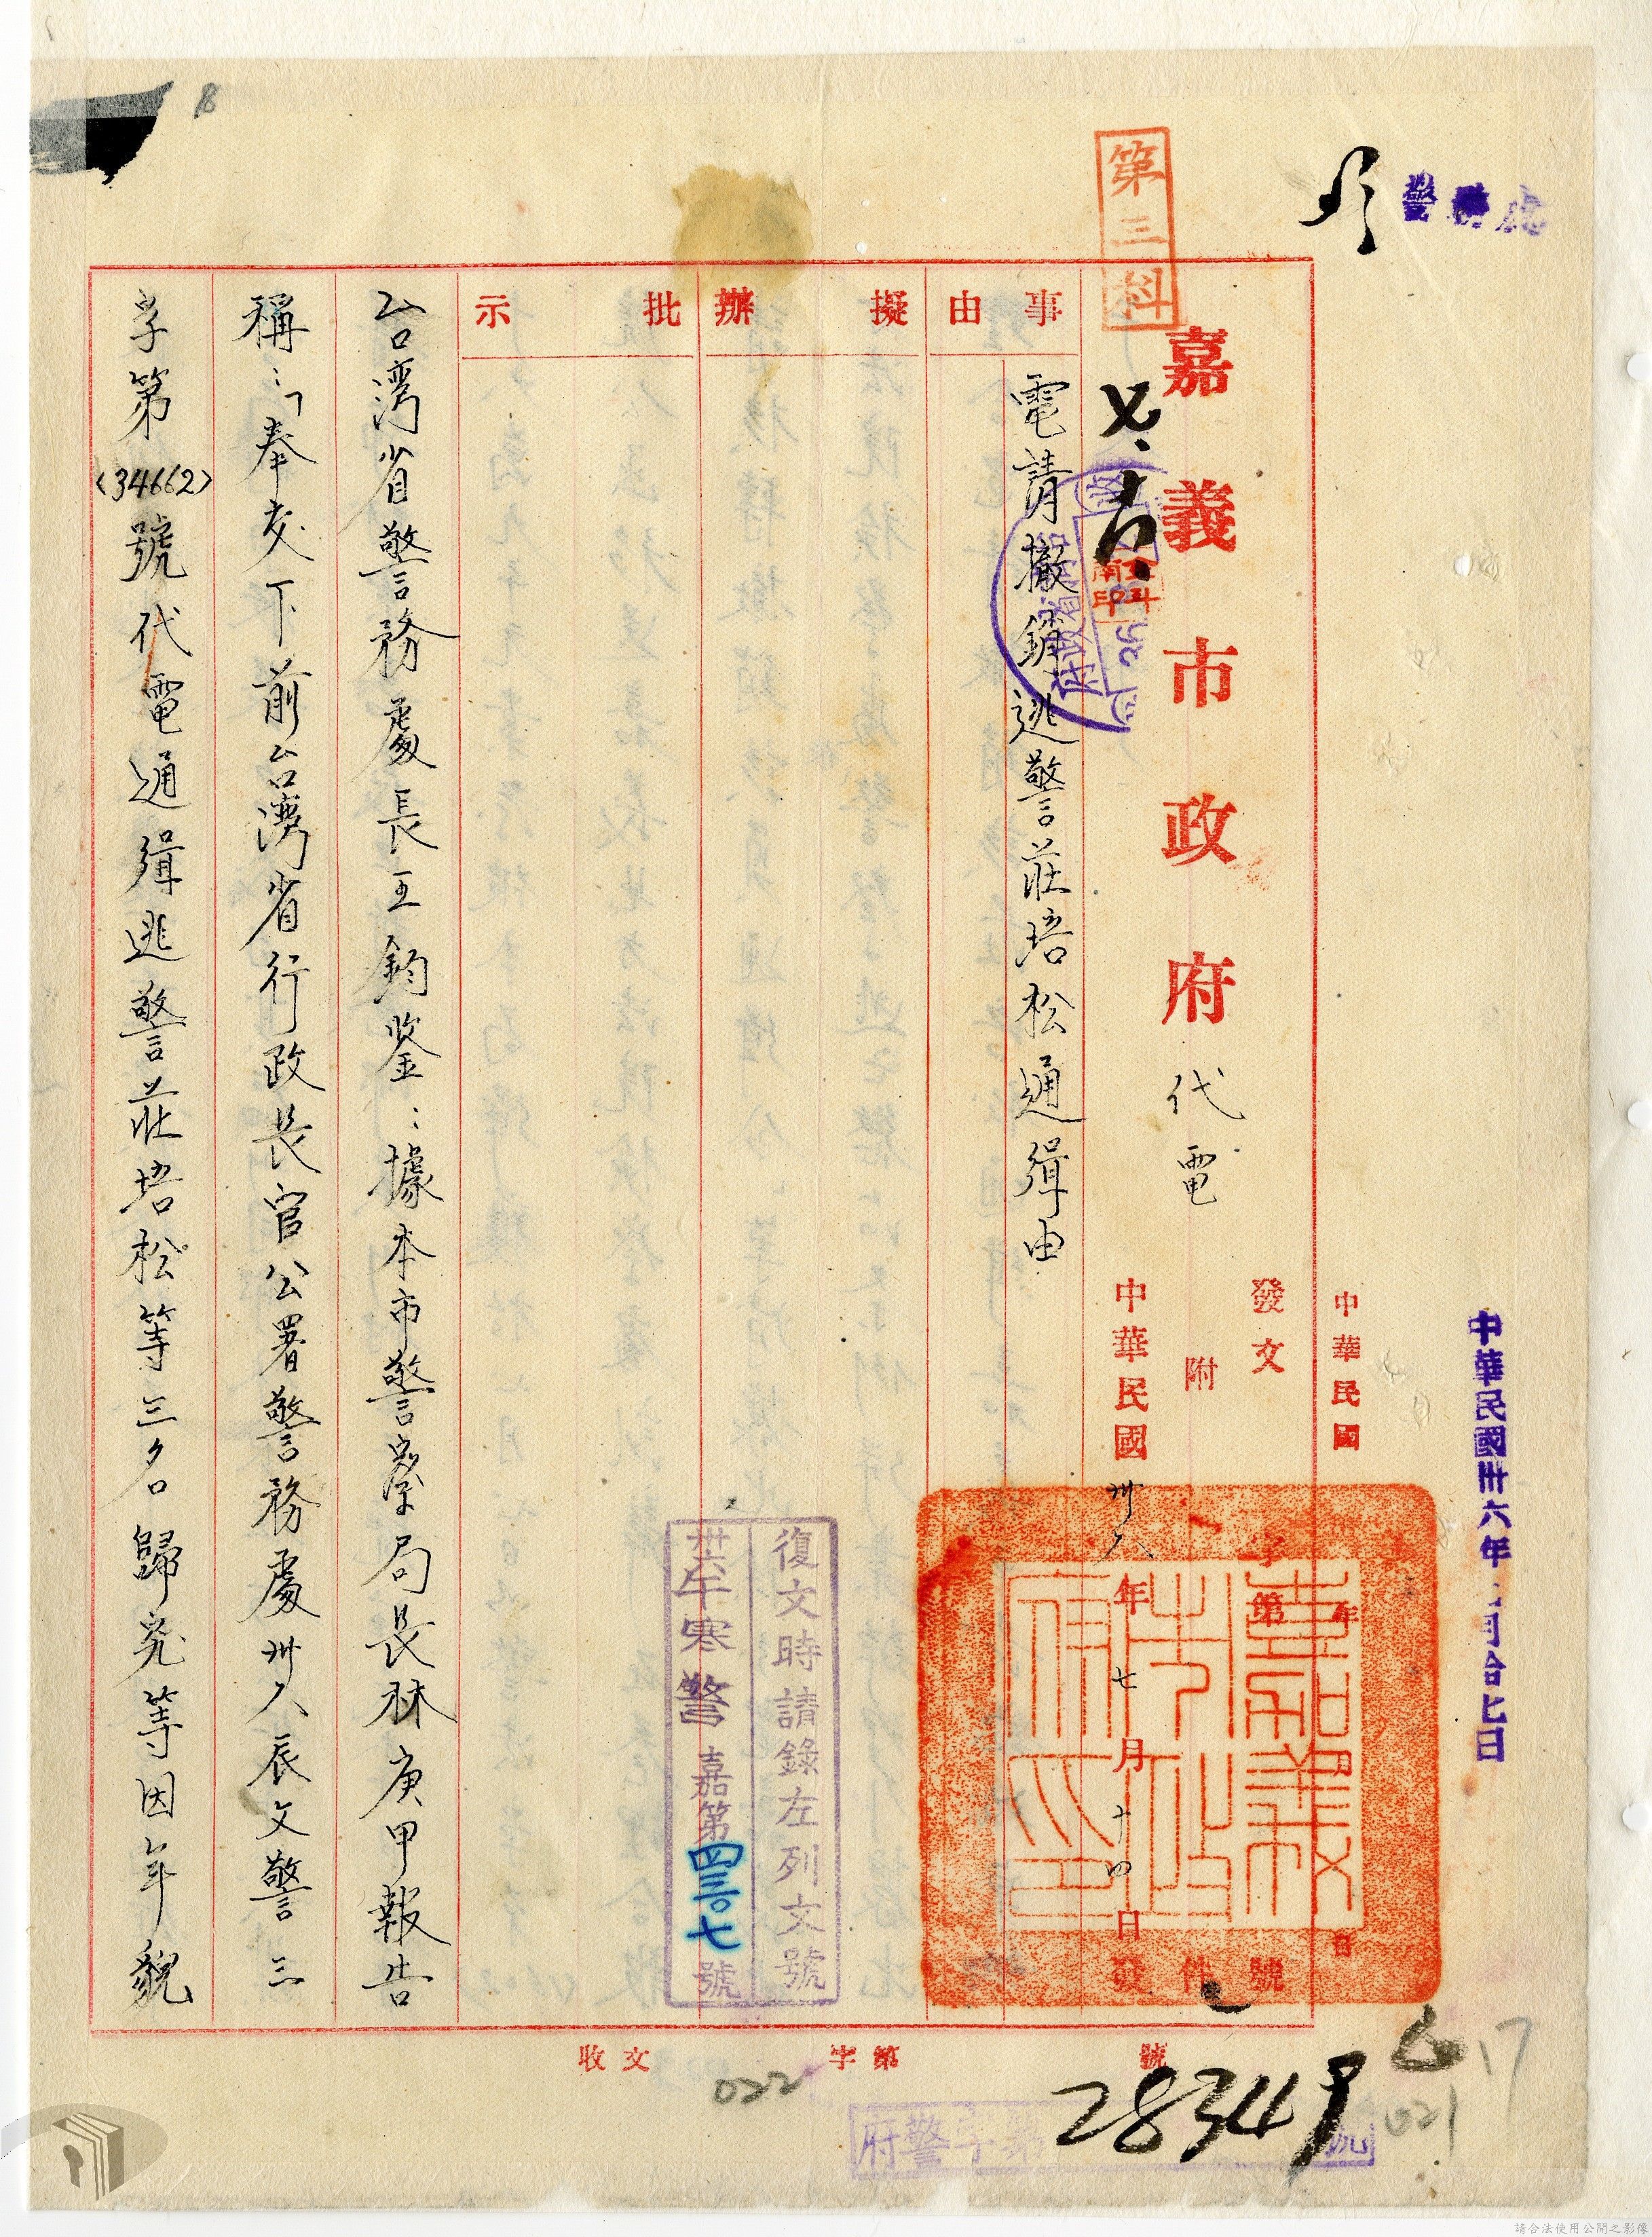 警務處
中華民國卅六年 月拾七日
第三科
嘉義市政府代電
中華民國 年 月 日
發文 字第 號
附 件
中華民國卅六年七月十四日發
嘉義市政府印
事由
電請撤銷逃警莊培松通緝由
擬辦
批示
復文時請錄左列文號
卅六午寒警嘉第 號
台灣省警務處長王鈞鑒：據本市警察局長林庚甲報告
稱：「奉交下前台灣省行政長官公署警務處卅六辰文警三
字第(34662)號代電通緝逃警莊培松等三名歸案等因年貌
收文 字第 號
28349
府警字第 號
022
021
17
8
請合法使用公開之影像